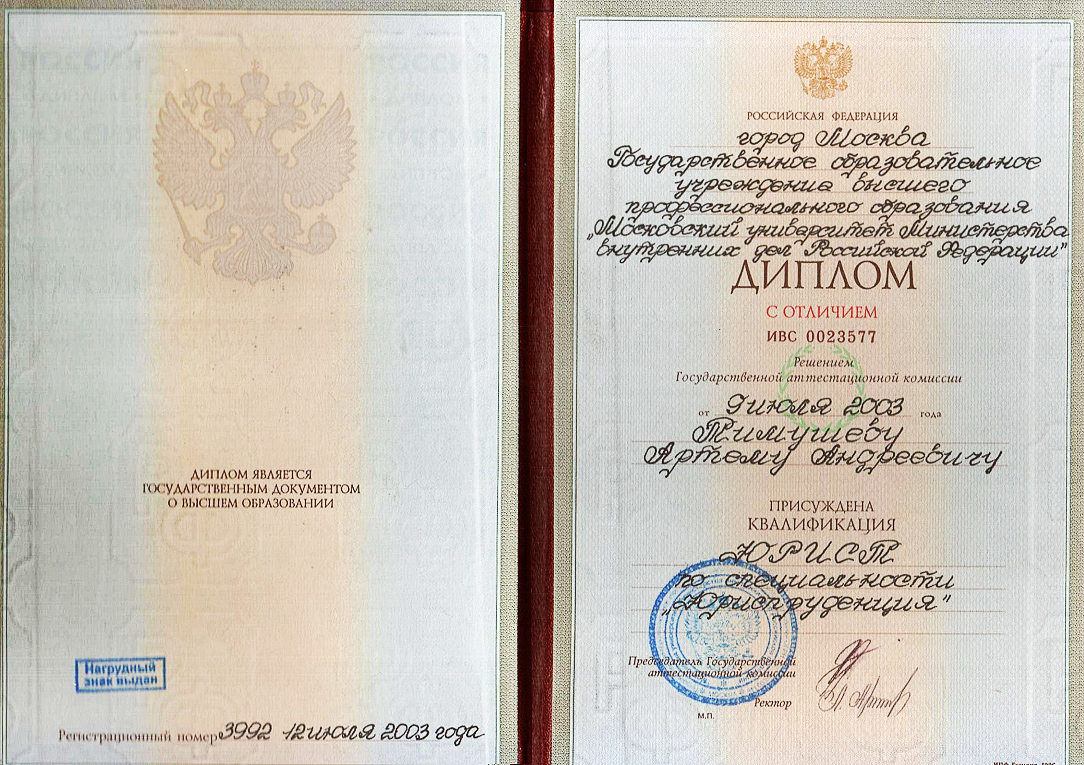 ДИПЛОМ ЯВЛЯЕТСЯ
ГОСУДАРСТВЕННЫМ ДОКУМЕНТОМ
О ВЫСШЕМ ОБРАЗОВАНИИ
Нагрудный
знак выдан
Регистрационный номер 3992 12 июля 2003 года
РОССИЙСКАЯ ФЕДЕРАЦИЯ
город Москва
Государственное образовательное
учреждение высшего
профессионального образования
„Московский университет Министерства
внутренних дел Российской Федерации"
ДИПЛОМ
С ОТЛИЧИЕМ
ИВС 0023577
Решением
Государственной аттестационной комиссии
от 9 июля 2003 года
Тимушеву
Артему Андреевичу
ПРИСУЖДЕНА
КВАЛИФИКАЦИЯ
ЮРИСТ
по специальности
„Юриспруденция"
Председатель Государственной
аттестационной комиссии
Ректор
М.П.